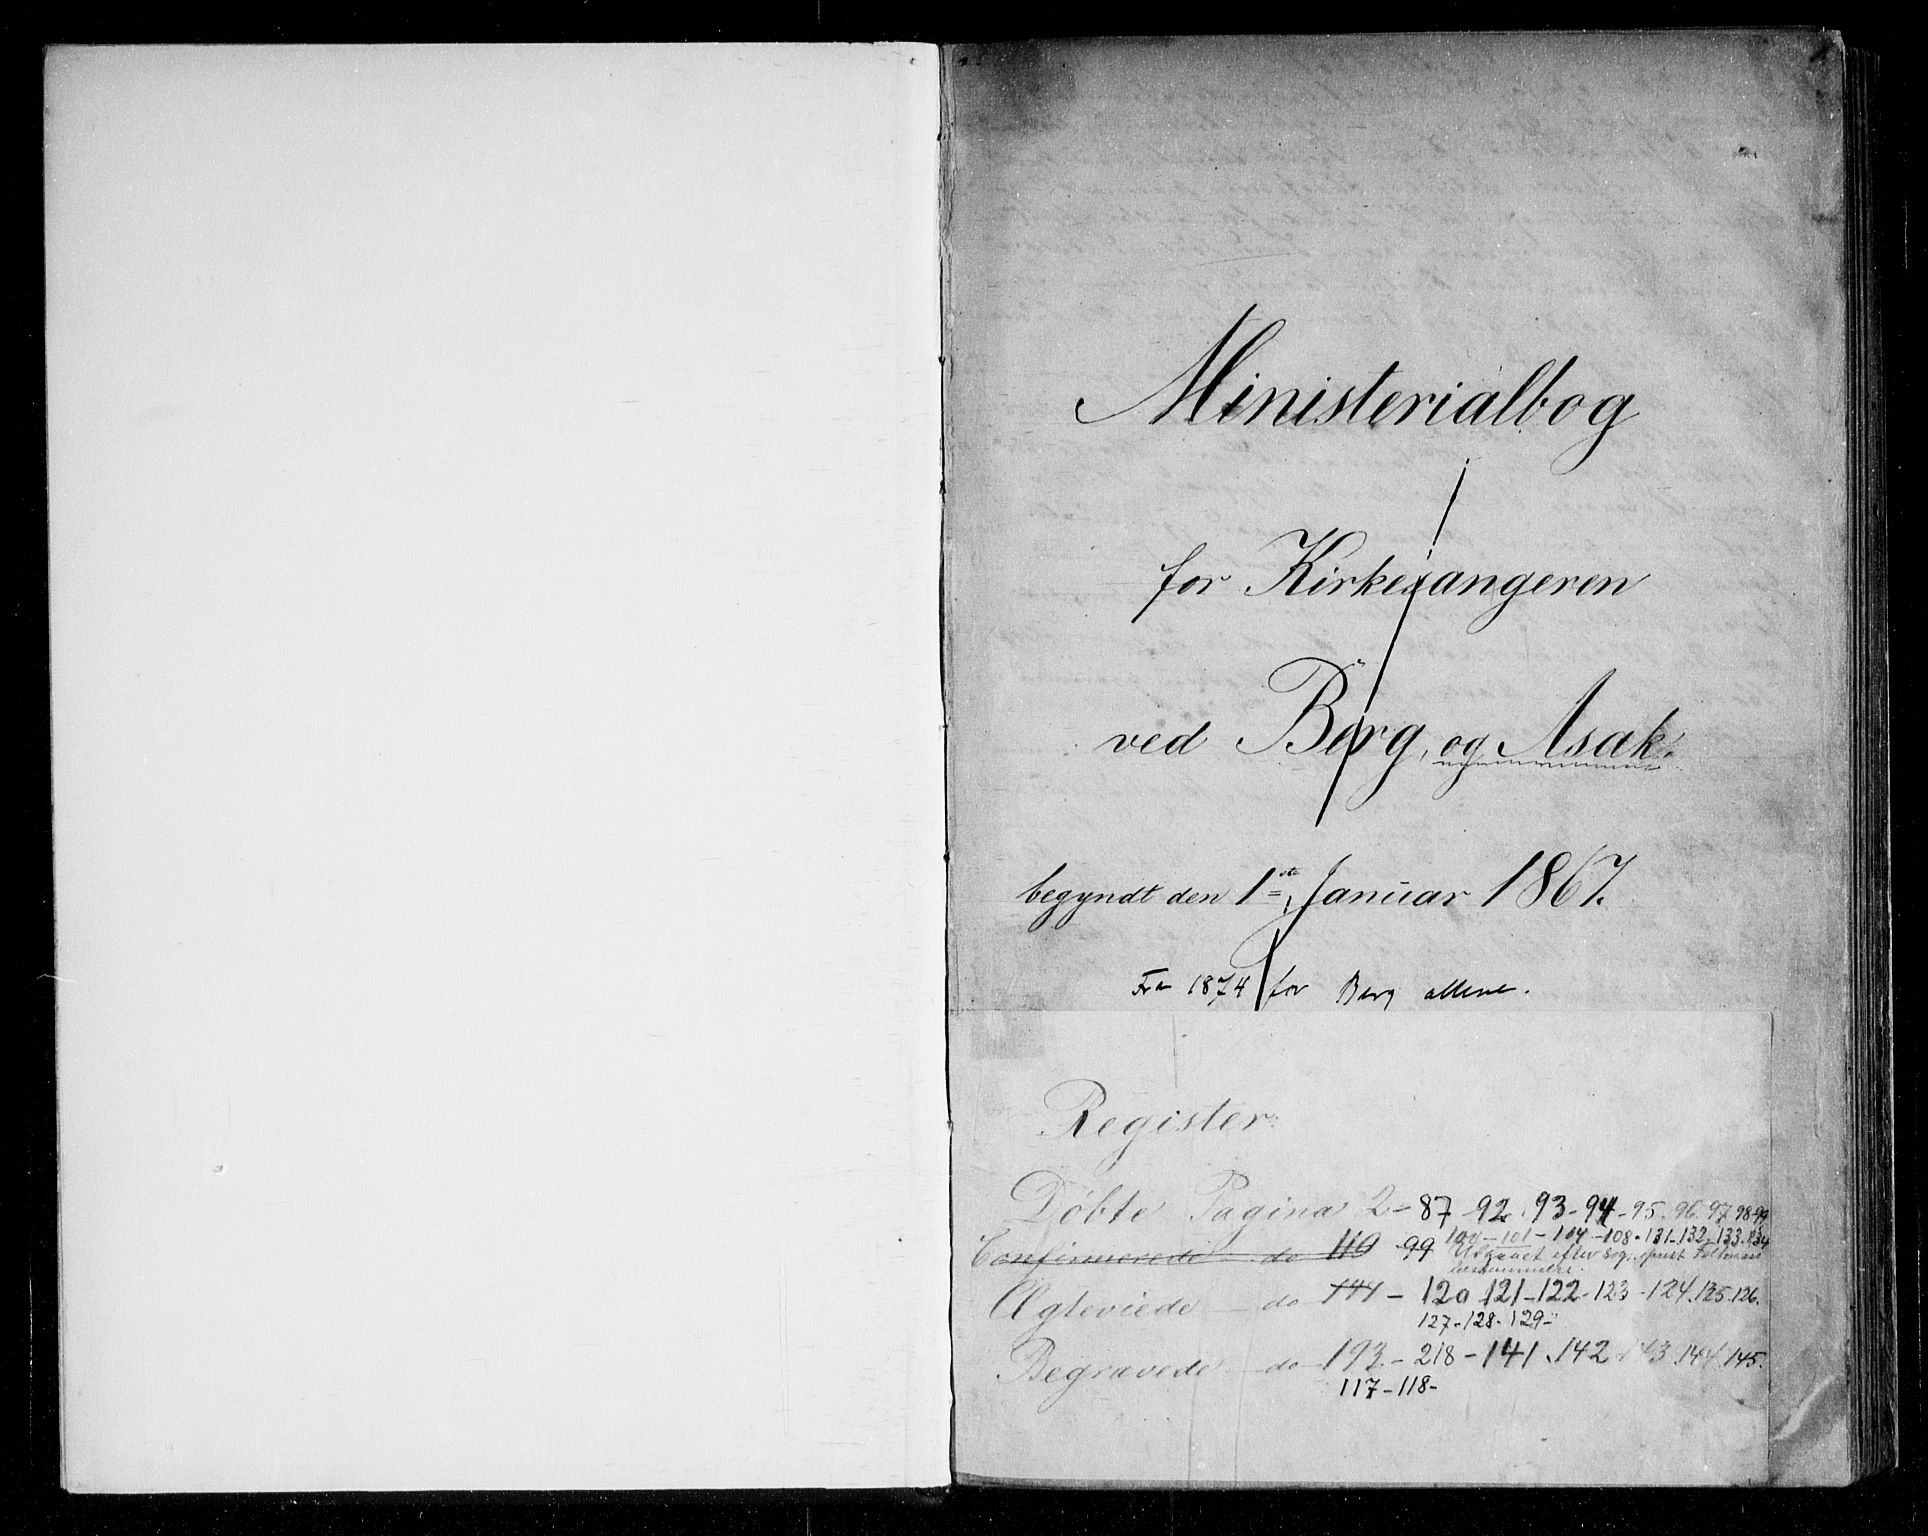 Ministerialbog
for Kirkesangeren
ved Berg, og Asak.
begyndt den 1ste Januar 1867.
Fra 1874 for Berg allene.
Register
Døbte Pagina 2 - 87 - 92. 93 - 94 - 95. 96. 97. 98-99
100 - 101 - 104 - 108 - 131 - 132 - 133 - 134
Confirmerede do 110 - 99 Udgaaet efter
Ægteviede - do - 144 - 120 121 - 122 - 123 - 124. 125. 126.
127 - 128 - 129 -
Begravede - do - 193 - 218 - 141. 142 - 143. 144. 145.
117 - 118 -